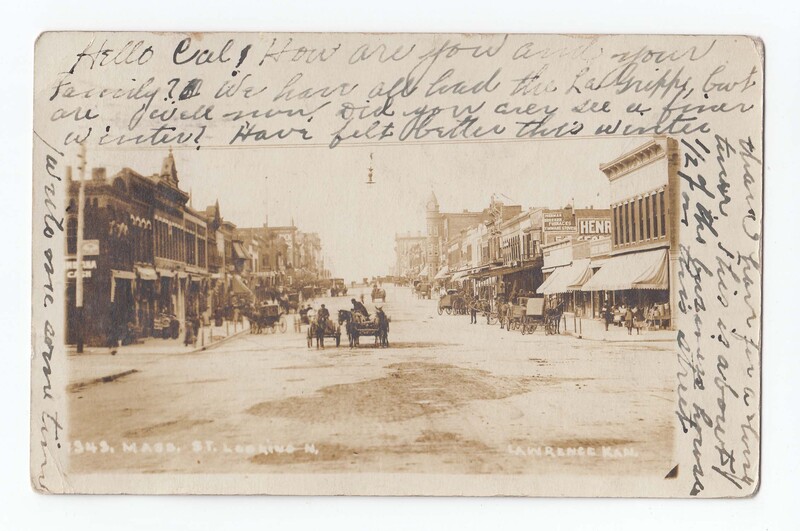 Hello Cal, How are you and your
family? We have all had the LaGrippe, but
are well now. Did you ever see a finer
winter? Have felt better this winter
than I have for a long
time. This is about
1/2 of the business houses
on this street.
write me some time
HENR
1343. MASS. ST. LOOKING N.
LAWRENCE KAN.